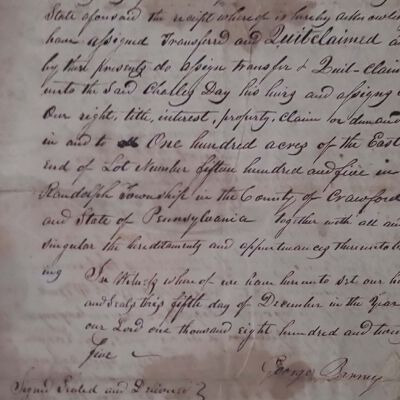 State aforesaid the receipt whereof is hereby acknowled
have assigned Transferred and Quitclaimed a
by these presents do assign transfer & Quit-Claim
unto the Said Charles Day his heirs and assigns
Our right, title, interest, property, claim or demand
in and to One hundred acres of the East
End of Lot Number fifteen hundred and five in
Randolph Township in the County of Crawford
and State of Pennsylvania together with all an
singular the hereditaments and appurtenances thereunto b
ing
In Witness whereof we have hereunto set our h
and seals this fifth day of December in the Year
our Lord one thousand eight hundred and
five
George
Signed Sealed and Delivered